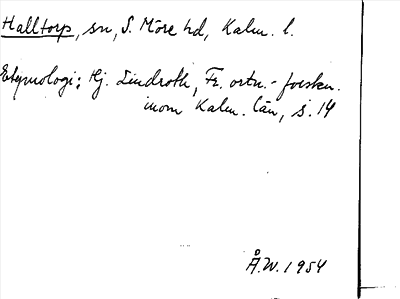 Halltorp, sn, S. Möre hd, Kalm. l.
Etymologi: Hj. Lindroth, Fr. ortn.-forskn.
inom Kalm. län, s. 14
Å.W. 1954